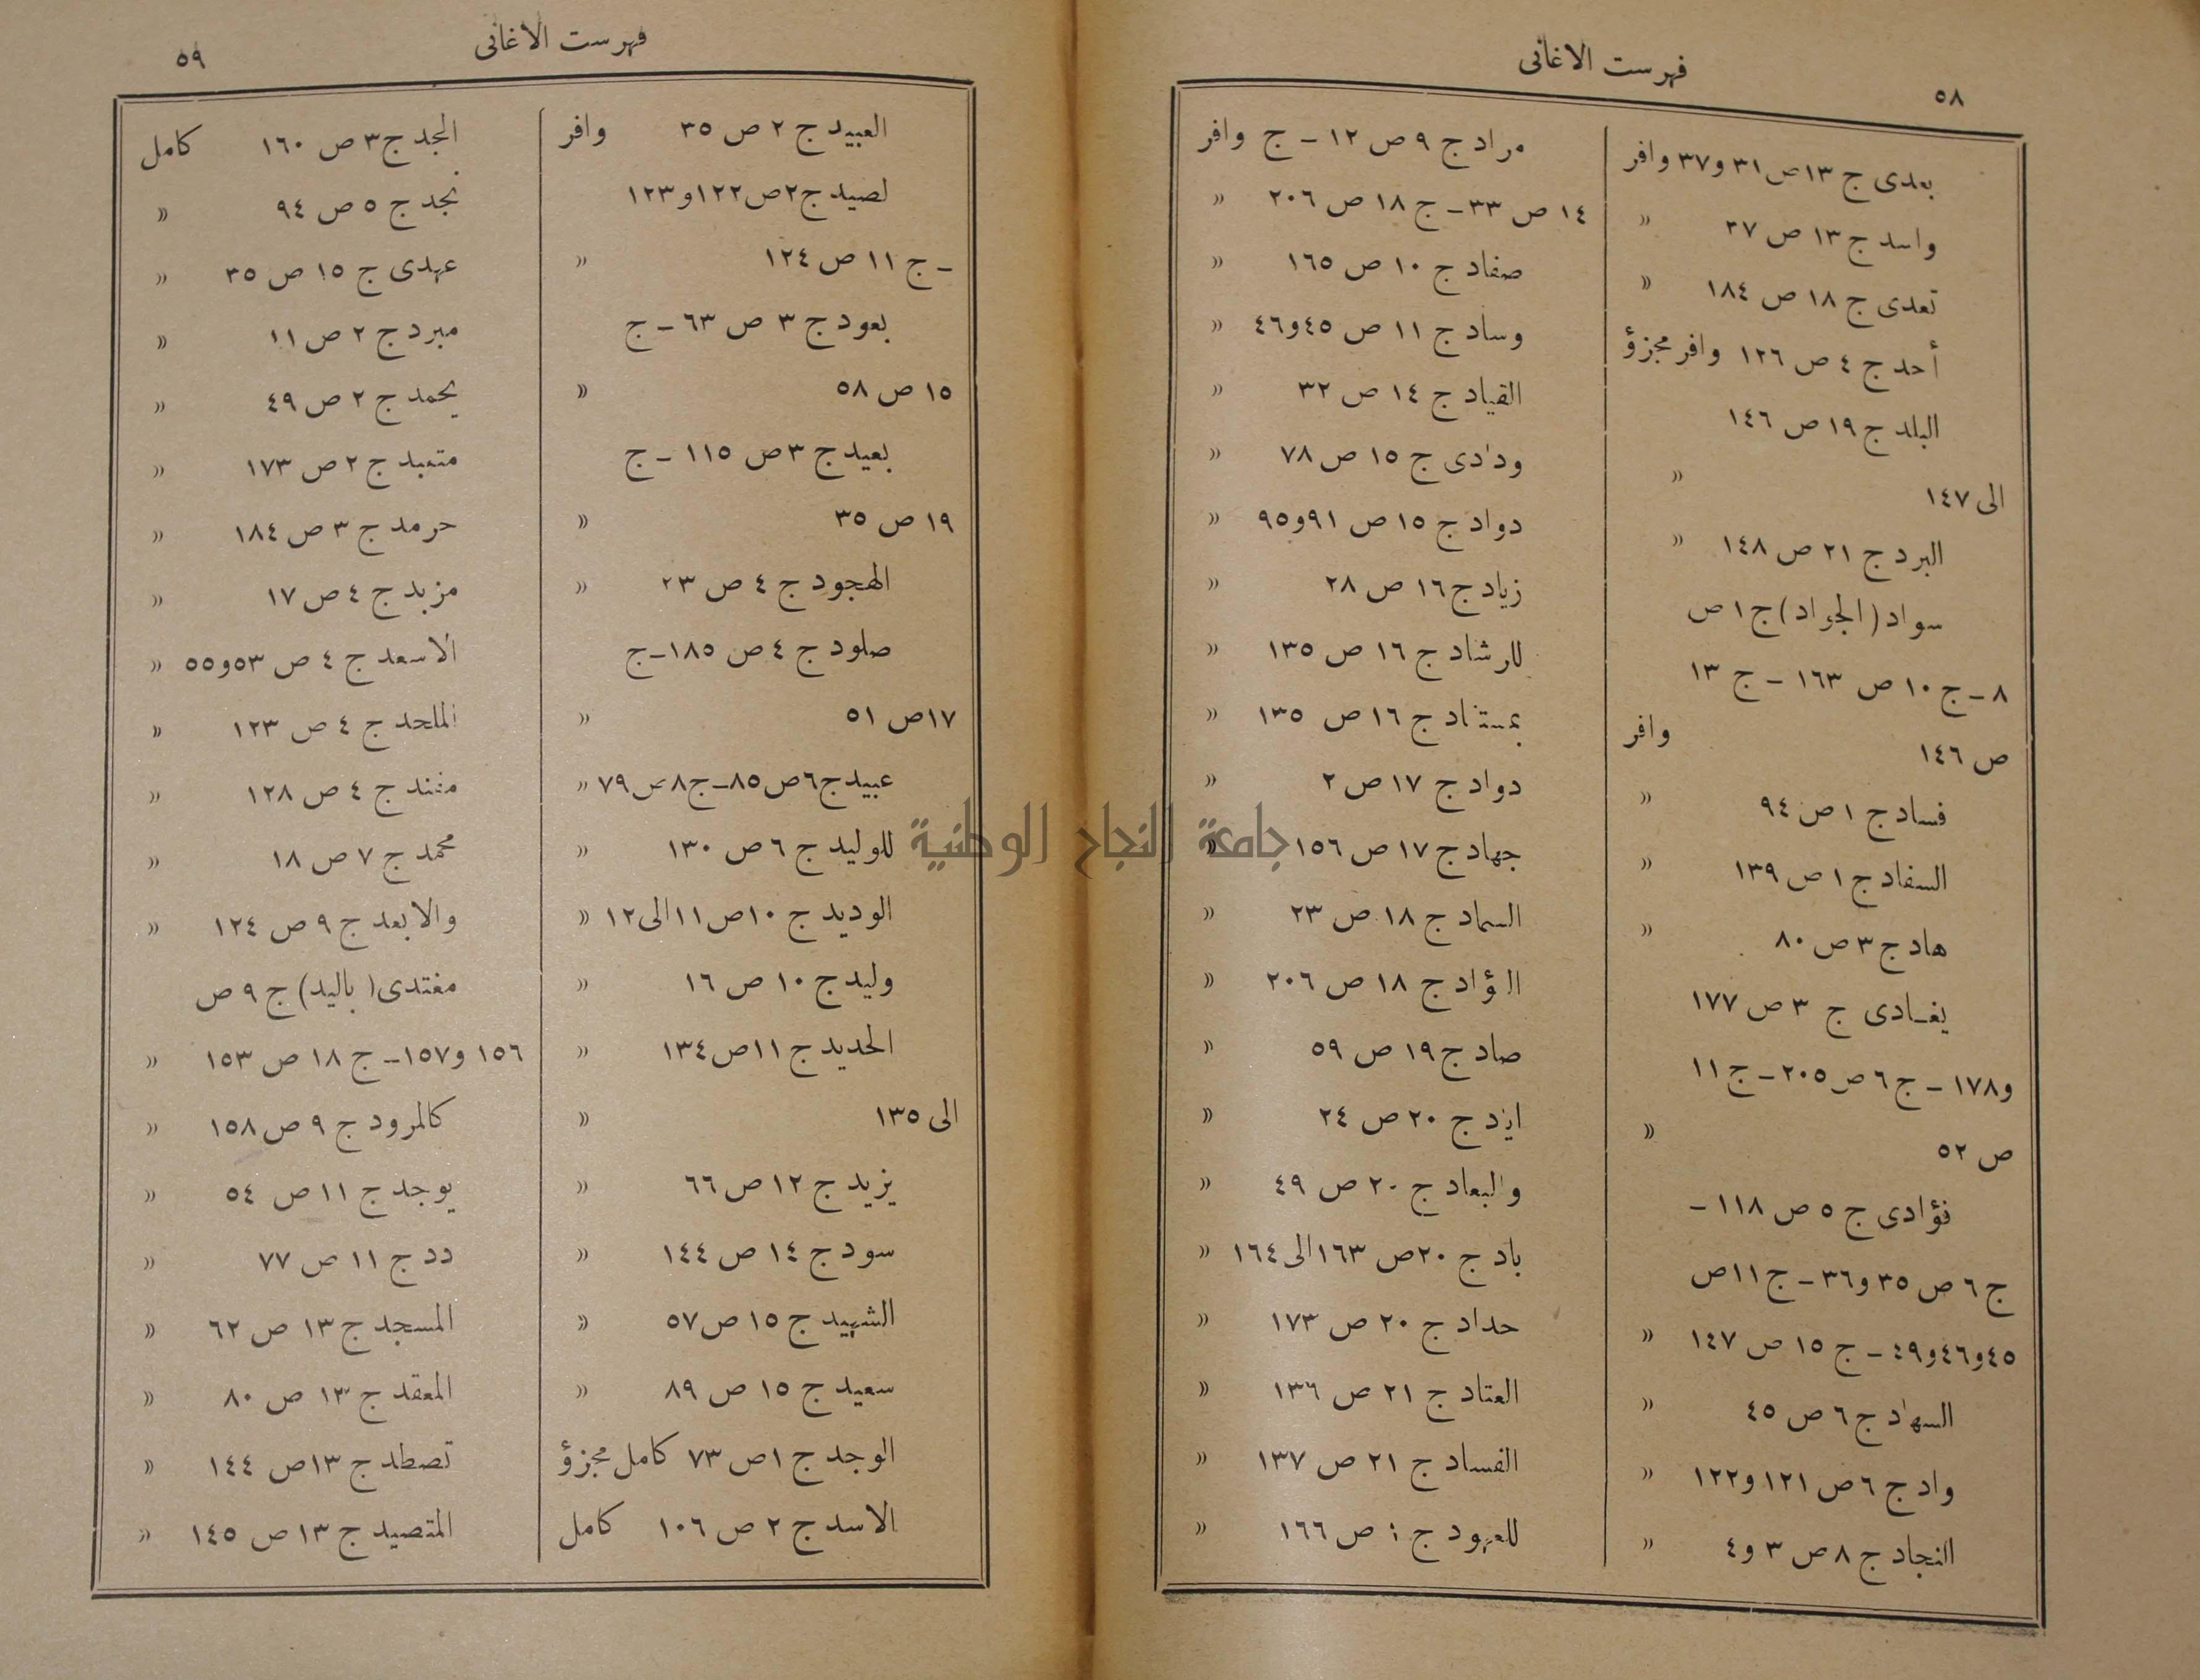 ٥٨
فهرست الاغانى
بعدى ج ١٣ ص ٣١ و٣٧ وافر
واسد ج ١٣ ص ٣٧ »
تعدى ج ١٨ ص ١٨٤ »
أحد ج ٤ ص ١٢٦ وافر مجزؤ
البلد ج ١٩ ص ١٤٦
الى ١٤٧ »
البرد ج ٢١ ص ١٤٨ »
سواد (الجواد) ج ١ ص
٨ - ج ١٠ ص ١٦٣ - ج ١٣
ص ١٤٦ وافر
فساد ج ١ ص ٩٤ »
السفاد ج ١ ص ١٣٩ »
هاد ج ٣ ص ٨٠ »
يغادى ج ٣ ص ١٧٧
و١٧٨ - ج ٦ ص ٢٠٥ - ج ١١
ص ٥٢ »
فؤادى ج ٥ ص ١١٨ -
ج ٦ ص ٣٥ و٣٦ - ج ١١ ص
٤٥ و٤٦ و٤٩ - ج ١٥ ص ١٤٧ »
السهاد ج ٦ ص ٤٥ »
واد ج ٦ ص ١٢١ و١٢٢ »
النجاد ج ٨ ص ٣ و٤ »
مراد ج ٩ ص ١٢ - ج وافر
١٤ ص ٣٣ - ج ١٨ ص ٢٠٦ »
صفاد ج ١٠ ص ١٦٥ »
وساد ج ١١ ص ٤٥ و٤٦ »
القياد ج ١٤ ص ٣٢ »
ودادى ج ١٥ ص ٧٨ »
دواد ج ١٥ ص ٩١ و٩٥ »
زياد ج ١٦ ص ٢٨ »
للرشاد ج ١٦ ص ١٣٥ »
بمستفاد ج ١٦ ص ١٣٥ »
دواد ج ١٧ ص ٢ »
جهاد ج ١٧ ص ١٥٦ »
السماد ج ١٨ ص ٢٣ »
الفؤاد ج ١٨ ص ٢٠٦ »
صاد ج ١٩ ص ٥٩ »
اياد ج ٢٠ ص ٢٤ »
والبعاد ج ٢٠ ص ٤٩ »
باد ج ٢٠ ص ١٦٣ الى ١٦٤ »
حداد ج ٢٠ ص ١٧٣ »
العتاد ج ٢١ ص ١٣٦ »
الفساد ج ٢١ ص ١٣٧ »
للعهود ج ص ١٦٦ »
فهرست الاغانى
٥٩
العبيد ج ٢ ص ٣٥ وافر
لصيد ج ٢ ص ١٢٢ و١٢٣
- ج ١١ ص ١٢٤ »
بعود ج ٣ ص ٦٣ - ج
١٥ ص ٥٨ »
بعيد ج ٣ ص ١١٥ - ج
١٩ ص ٣٥ »
الهجود ج ٤ ص ٢٣ »
صلود ج ٤ ص ١٨٥ - ج
١٧ ص ٥١ »
عبيد ج ٦ ص ٨٥ - ج ٨ ص ٧٩ »
للوليد ج ٦ ص ١٣٠ »
الوديد ج ١٠ ص ١١ الى ١٢ »
وليد ج ١٠ ص ١٦ »
الحديد ج ١١ ص ١٣٤ »
الى ١٣٥ »
يزيد ج ١٢ ص ٦٦ »
سود ج ١٤ ص ١٤٤ »
الشهيد ج ١٥ ص ٥٧ »
سعيد ج ١٥ ص ٨٩ »
الوجد ج ١ ص ٧٣ كامل مجزؤ
الاسد ج ٢ ص ١٠٦ كامل
المجد ج ٣ ص ١٦٠ كامل
نجد ج ٥ ص ٩٤ »
عهدى ج ١٥ ص ٣٥ »
مبرد ج ٢ ص ١١ »
يحمد ج ٢ ص ٤٩ »
متعبد ج ٢ ص ١٧٣ »
حرمد ج ٣ ص ١٨٤ »
مزبد ج ٤ ص ١٧ »
الاسعد ج ٤ ص ٥٣ و٥٥ »
الملحد ج ٤ ص ١٢٣ »
مفند ج ٤ ص ١٢٨ »
محمد ج ٧ ص ١٨ »
والابعد ج ٩ ص ١٢٤ »
مفتدى (باليد) ج ٩ ص
١٥٦ و١٥٧ - ج ١٨ ص ١٥٣ »
كالمرود ج ٩ ص ١٥٨ »
يوجد ج ١١ ص ٥٤ »
دد ج ١١ ص ٧٧ »
المسجد ج ١٣ ص ٦٢ »
المعقد ج ١٣ ص ٨٠ »
تصطد ج ١٣ ص ١٤٤ »
المتصيد ج ١٣ ص ١٤٥ »
جامعة النجاح الوطنية